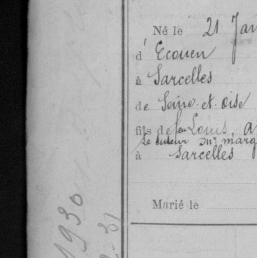 Né le 21 Jan
d' Ecouen
à Sarcelles
de Seine et Oise
fils de feu Louis, a
se tuteur Mr Marq
à Sarcelles
Marié le
1930